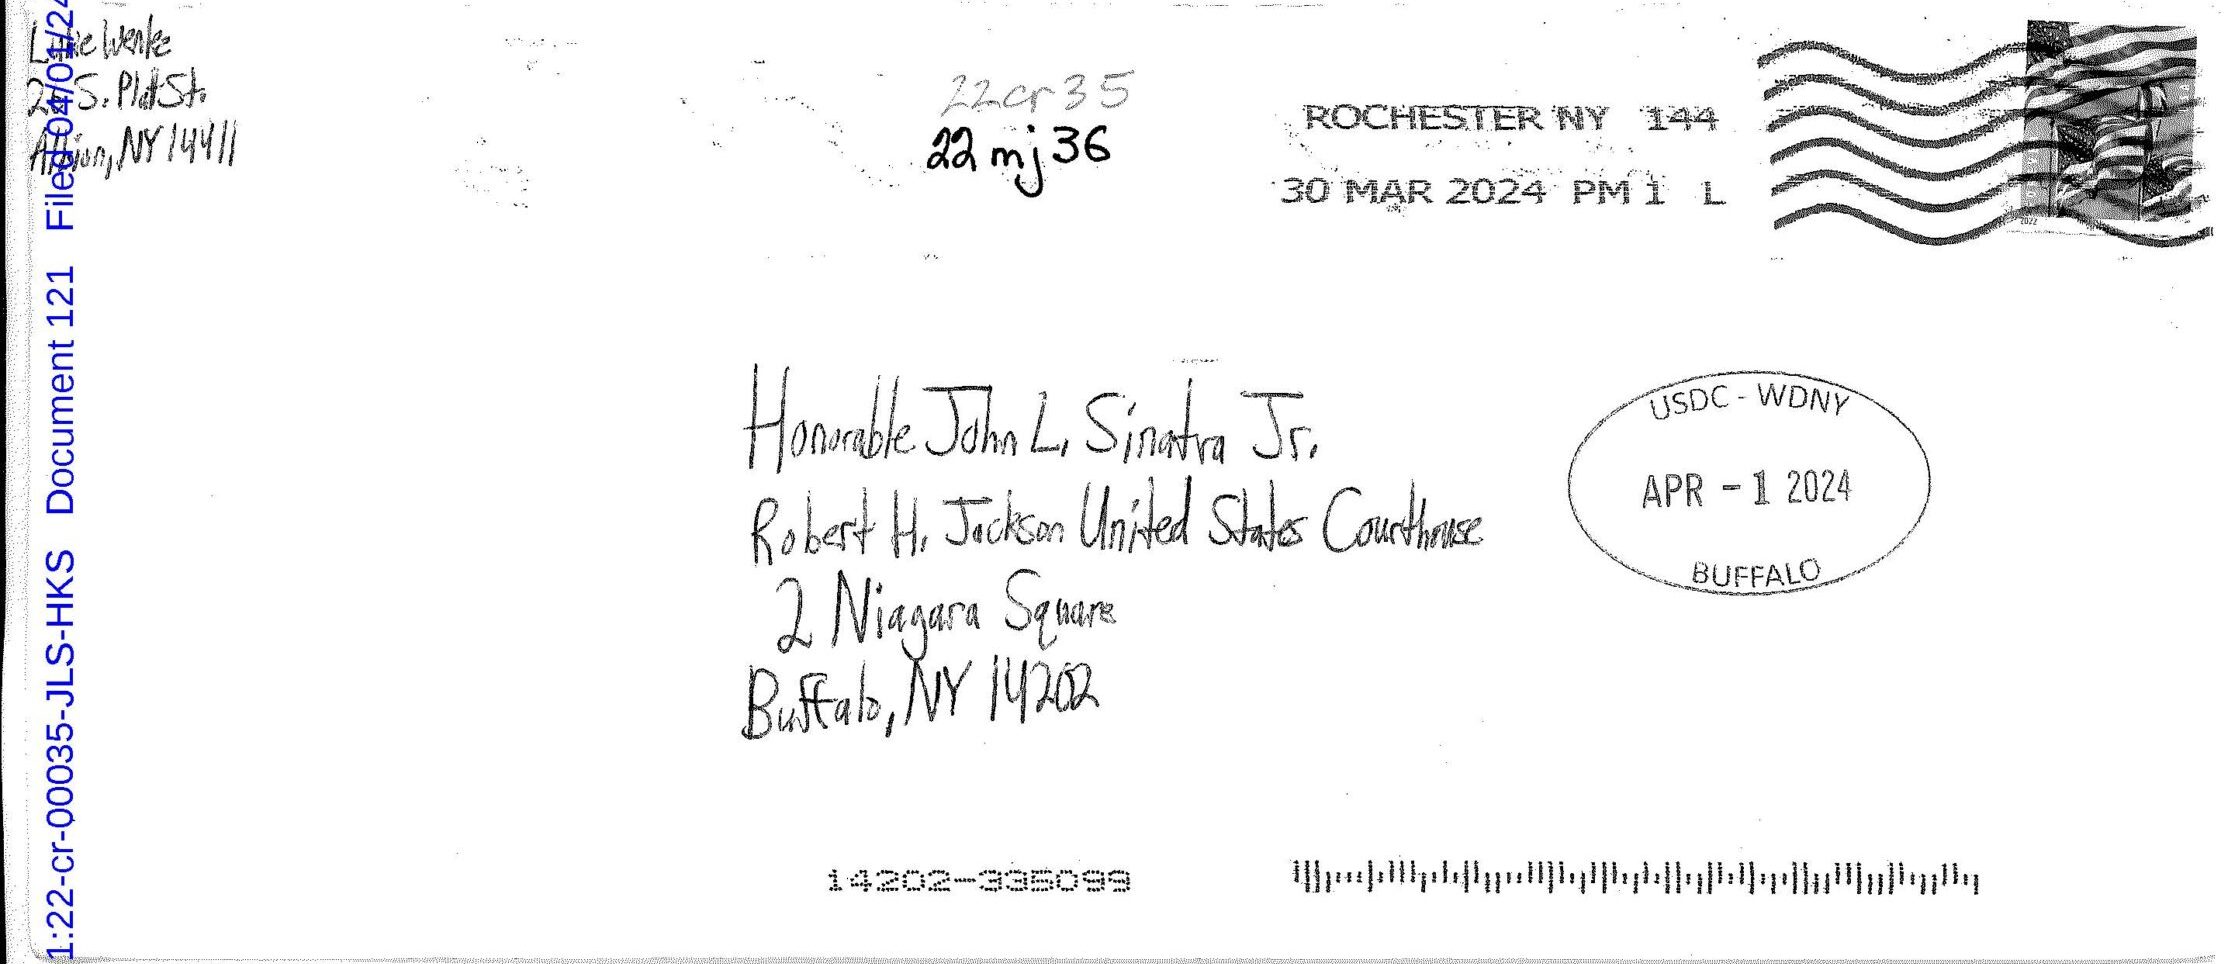 Wenke
S. Platt St.
Albion, NY 14411
22cr35
22mj36
ROCHESTER NY 144
30 MAR 2024 PM 1 L
2022
Honorable John L. Sinatra Jr.
Robert H. Jackson United States Courthouse
2 Niagara Square
Buffalo, NY 14202
USDC - WDNY
APR - 1 2024
BUFFALO
14202-335099
1:22-cr-00035-JLS-HKS Document 121 Filed 04/01/24